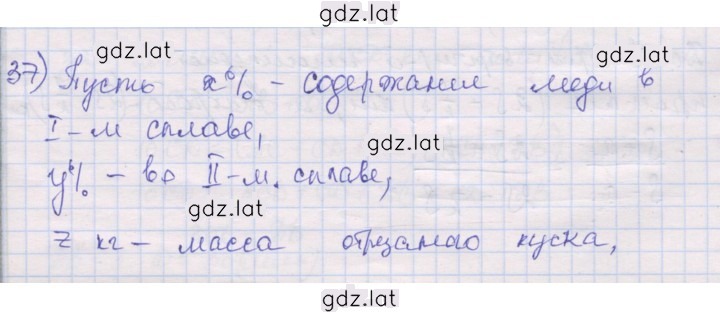 gdz.lat
37) Пусть x% - содержание меди в
gdz.lat
I-м сплаве,
gdz.lat
y% - во II-м. сплаве,
gdz.lat
z кг - масса отрезаного куска,
gdz.lat